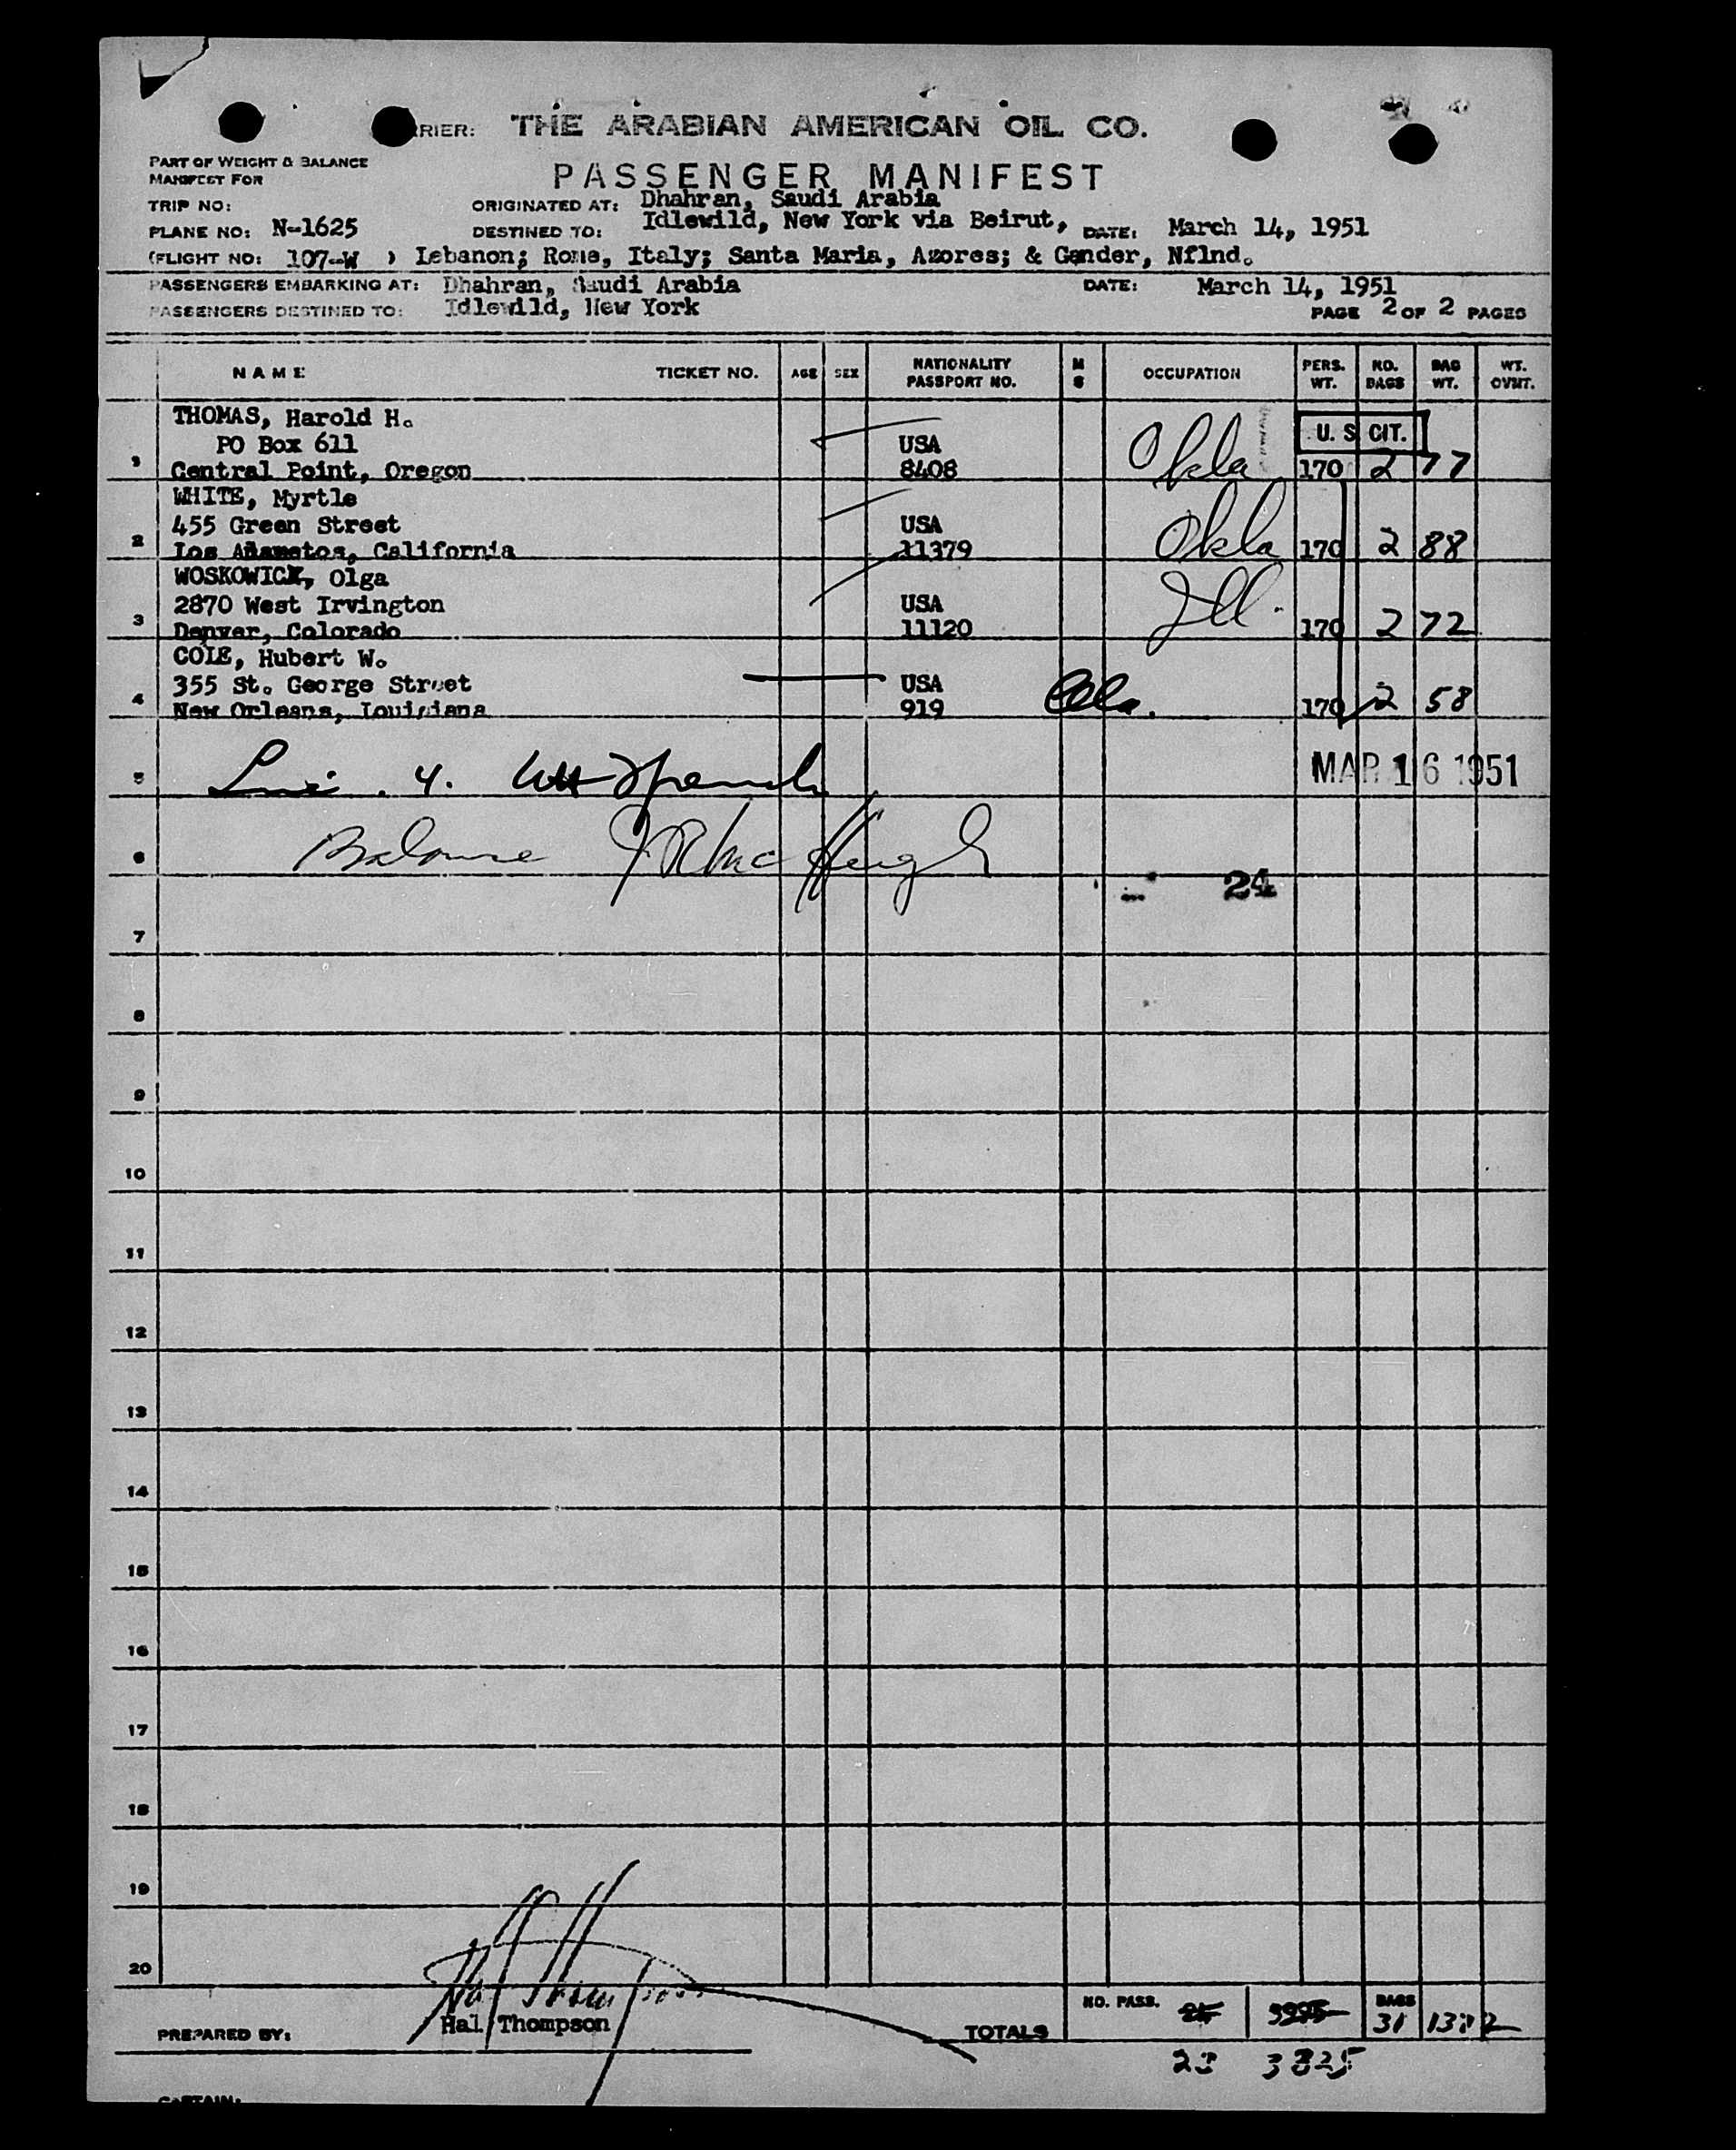 RRIER: THE ARABIAN AMERICAN OIL CO.
PART OF WEIGHT & BALANCE
MANIFEST FOR
PASSENGER MANIFEST
TRIP NO:
ORIGINATED AT: Dhahran, Saudi Arabia
PLANE NO: N-1625
DESTINED TO: Idlewild, New York via Beirut, DATE: March 14, 1951
(FLIGHT NO: 107-W ) Lebanon; Rome, Italy; Santa Maria, Azores; & Gander, Nflnd.
PASSENGERS EMBARKING AT: Dhahran, Saudi Arabia DATE: March 14, 1951
PASSENGERS DESTINED TO: Idlewild, New York PAGE 2 OF 2 PAGES
NAME TICKET NO. AGE SEX NATIONALITY PASSPORT NO. M S OCCUPATION PERS. WT. NO. BAGS BAG WT. WT. OVWT.
THOMAS, Harold H.
PO Box 611 USA U. S CIT.
1 Central Point, Oregon 8408 Okla 170 2 77
WHITE, Myrtle
455 Green Street USA
2 Los Alametos, California 11379 Okla 170 2 88
WOSKOWICK, Olga
2870 West Irvington USA
3 Denver, Colorado 11120 Ill. 170 2 72
COLE, Hubert W.
355 St. George Street USA
4 New Orleans, Louisiana 919 170 2 58
5 4. MAR 16 1951
6 Balance
24
7
8
9
10
11
12
13
14
15
16
17
18
19
20
Hal Thompson
NO. PASS. BAGS
PREPARED BY: Hal Thompson TOTALS 31
3825
CAPTAIN: